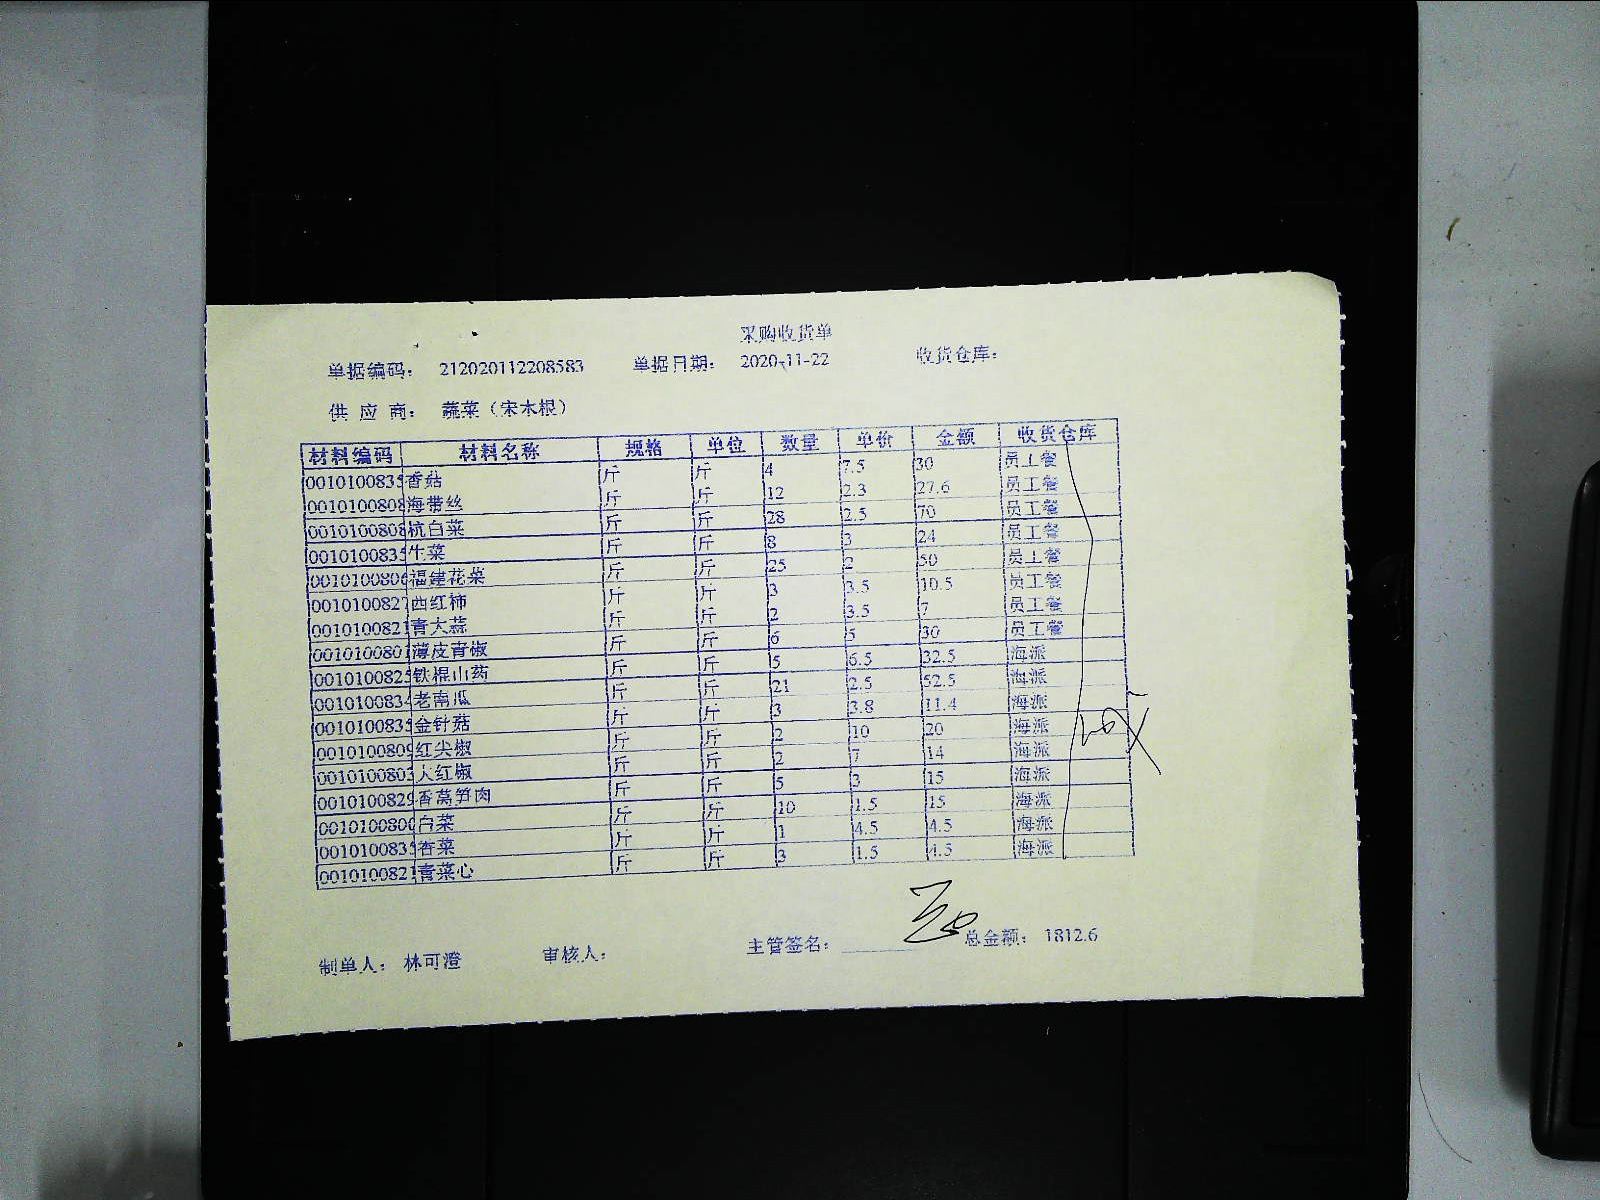 采购收货单
单据编码： 212020112208583 单据日期： 2020-11-22 收货仓库：
供 应 商： 蔬菜（宋木根）
材料编码 材料名称 规格 单位 数量 单价 金额 收货仓库
0010100835 香菇 斤 斤 4 7.5 30 员工餐
0010100808 海带丝 斤 斤 12 2.3 27.6 员工餐
0010100808 杭白菜 斤 斤 28 2.5 70 员工餐
0010100835 生菜 斤 斤 8 3 24 员工餐
0010100806 福建花菜 斤 斤 25 2 50 员工餐
0010100827 西红柿 斤 斤 3 3.5 10.5 员工餐
0010100821 青大蒜 斤 斤 2 3.5 7 员工餐
0010100801 薄皮青椒 斤 斤 6 5 30 员工餐
0010100825 铁棍山药 斤 斤 5 6.5 32.5 海派
0010100834 老南瓜 斤 斤 21 2.5 52.5 海派
0010100835 金针菇 斤 斤 3 3.8 11.4 海派
0010100809 红尖椒 斤 斤 2 10 20 海派
0010100803 大红椒 斤 斤 2 7 14 海派
0010100829 香莴笋肉 斤 斤 5 3 15 海派
0010100800 白菜 斤 斤 10 1.5 15 海派
0010100835 香菜 斤 斤 1 4.5 4.5 海派
0010100821 青菜心 斤 斤 3 1.5 4.5 海派
制单人： 林可澄 审核人： 主管签名： 总金额： 1812.6